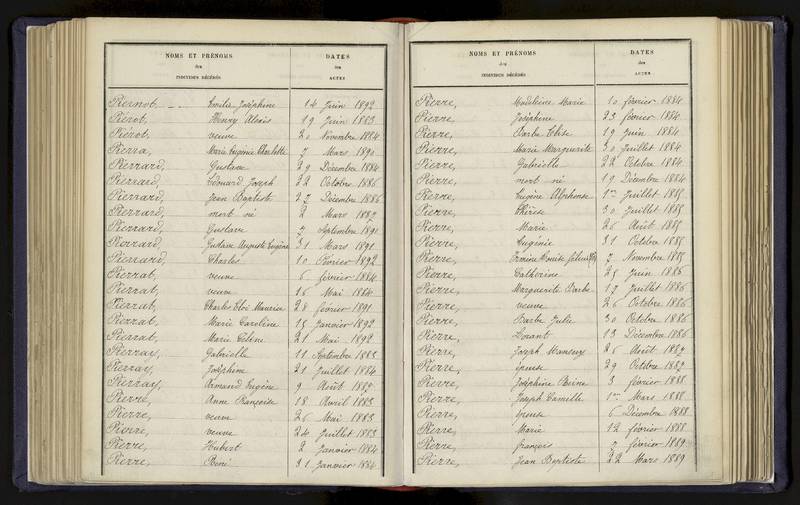 NOMS ET PRÉNOMS
des
INDIVIDUS DÉCÉDÉS
DATES
des
ACTES
Piernot, Emilie Joséphine 14 Juin 1892
Piérot, Henry Alexis 19 Juin 1883
Piérot, veuve 20 Novembre 1884
Pierra, Marie Eugénie Charlotte 7 Mars 1890
Pierrard, Gustave 29 Décembre 1884
Pierrard, Edouard Joseph 22 Octobre 1886
Pierrard, Jean Baptiste 27 Décembre 1886
Pierrard, mort né 2 Mars 1887
Pierrard, Gustave 7 Septembre 1891
Pierrard, Gustave Auguste Eugène 31 Mars 1891
Pierrard, Charles 10 Février 1892
Pierrat, veuve 6 février 1884
Pierrat, veuve 16 Mai 1884
Pierrat, Charles Eloi Maurice 28 février 1891
Pierrat, Marie Caroline 15 Janvier 1892
Pierrat, Marie Celine 21 Mai 1892
Pierray, Gabrielle 11 Septembre 1883
Pierray, Joséphine 21 Juillet 1884
Pierray, Armand Eugène 9 Août 1885
Pierre, Anne Françoise 18 Avril 1883
Pierre, veuve 26 Mai 1883
Pierre, veuve 24 Juillet 1883
Pierre, Hubert 2 Janvier 1884
Pierre, René 31 Janvier 1884
NOMS ET PRÉNOMS
des
INDIVIDUS DÉCÉDÉS
DATES
des
ACTES
Pierre, Madeleine Marie 10 février 1884
Pierre, Joséphine 23 février 1884
Pierre, Barbe Elise 19 Juin 1884
Pierre, Marie Marguerite 30 Juillet 1884
Pierre, Gabrielle 22 Octobre 1884
Pierre, mort né 19 Décembre 1884
Pierre, Eugène Alphonse 1er Juillet 1885
Pierre, Thérèse 30 Juillet 1885
Pierre, Marie 26 Août 1885
Pierre, Eugénie 31 Octobre 1885
Pierre, Louise 7 Novembre 1885
Pierre, Catherine 25 Juin 1886
Pierre, Marguerite Barbe 17 Juillet 1886
Pierre, veuve 26 Octobre 1886
Pierre, Barbe Julie 30 Octobre 1886
Pierre, Lorant 13 Décembre 1886
Pierre, Joseph Mansuy 26 Août 1887
Pierre, épouse 29 Octobre 1887
Pierre, Joséphine Reine 3 février 1888
Pierre, Joseph Camille 1er Mars 1888
Pierre, épouse 6 Décembre 1888
Pierre, Marie 12 février 1888
Pierre, françois 7 février 1889
Pierre, Jean Baptiste 22 Mars 1889